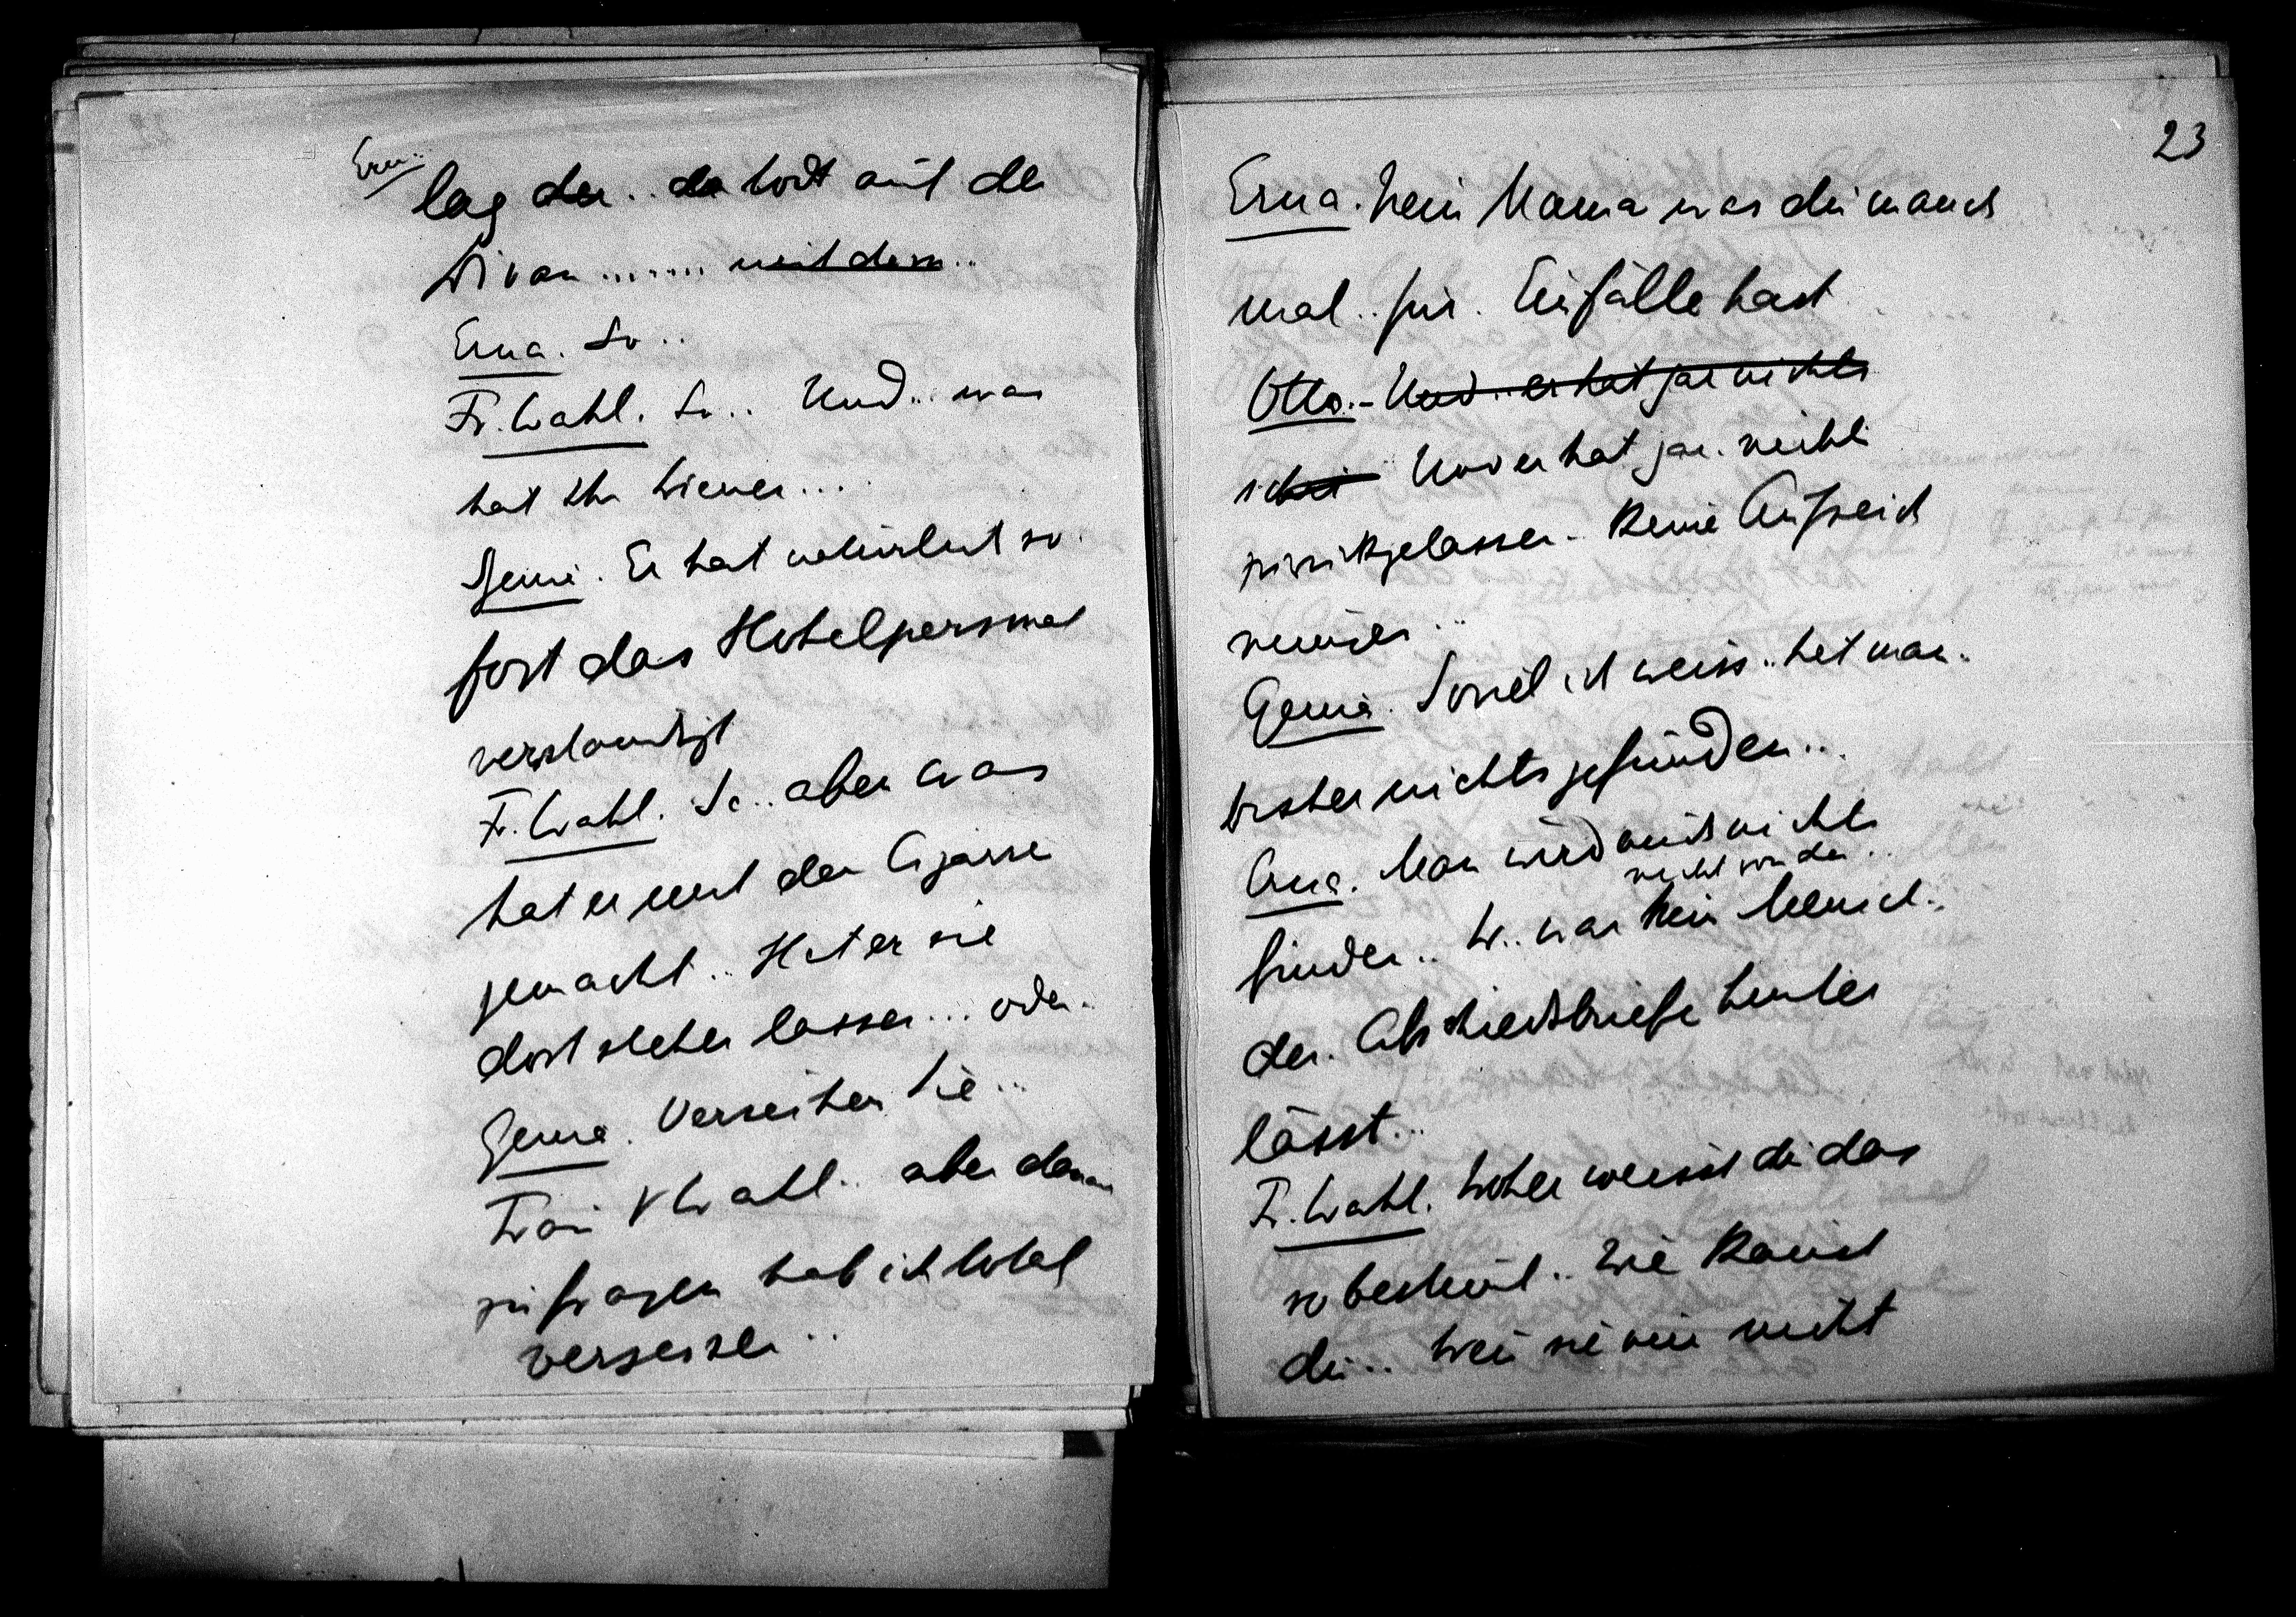 Erna
lag der.. da todt auf de
Divan ....... mit dem..
Erna. So..
Fr. Wahl. So.. Und.. was
hat der Diener....
Genia. Er hat natürlich so
fort das Hotelpersonal
verständigt
Fr. Wahl. So.. aber was
hat er mit der Cigarre
gemacht.. Hat er sie
dort stehen lassen... oder.
Genia. Verzeihen Sie..
Frau Wahl.. aber danach
zu fragen hab ich total
vergessen..
23
Erna. Nein Mama was du manch
mal.. für. Einfälle hast
Otto.- Und.. er hat gar nichts
Und er hat gar. nichts
zurückgelassen.- Keine Aufzeich
nungen..
Genia. Soviel ich weiss.. hat man..
bisher nichts gefunden...
Erna. Man wird auch nichts
nicht von den..
finden.. Er.. war kein Mensch..
der. Abschiedsbriefe hinter
lässt...
Fr. Wahl. Woher weisst du das
so bestimmt.. Wie kannst
du.. Wenn sie nur nicht